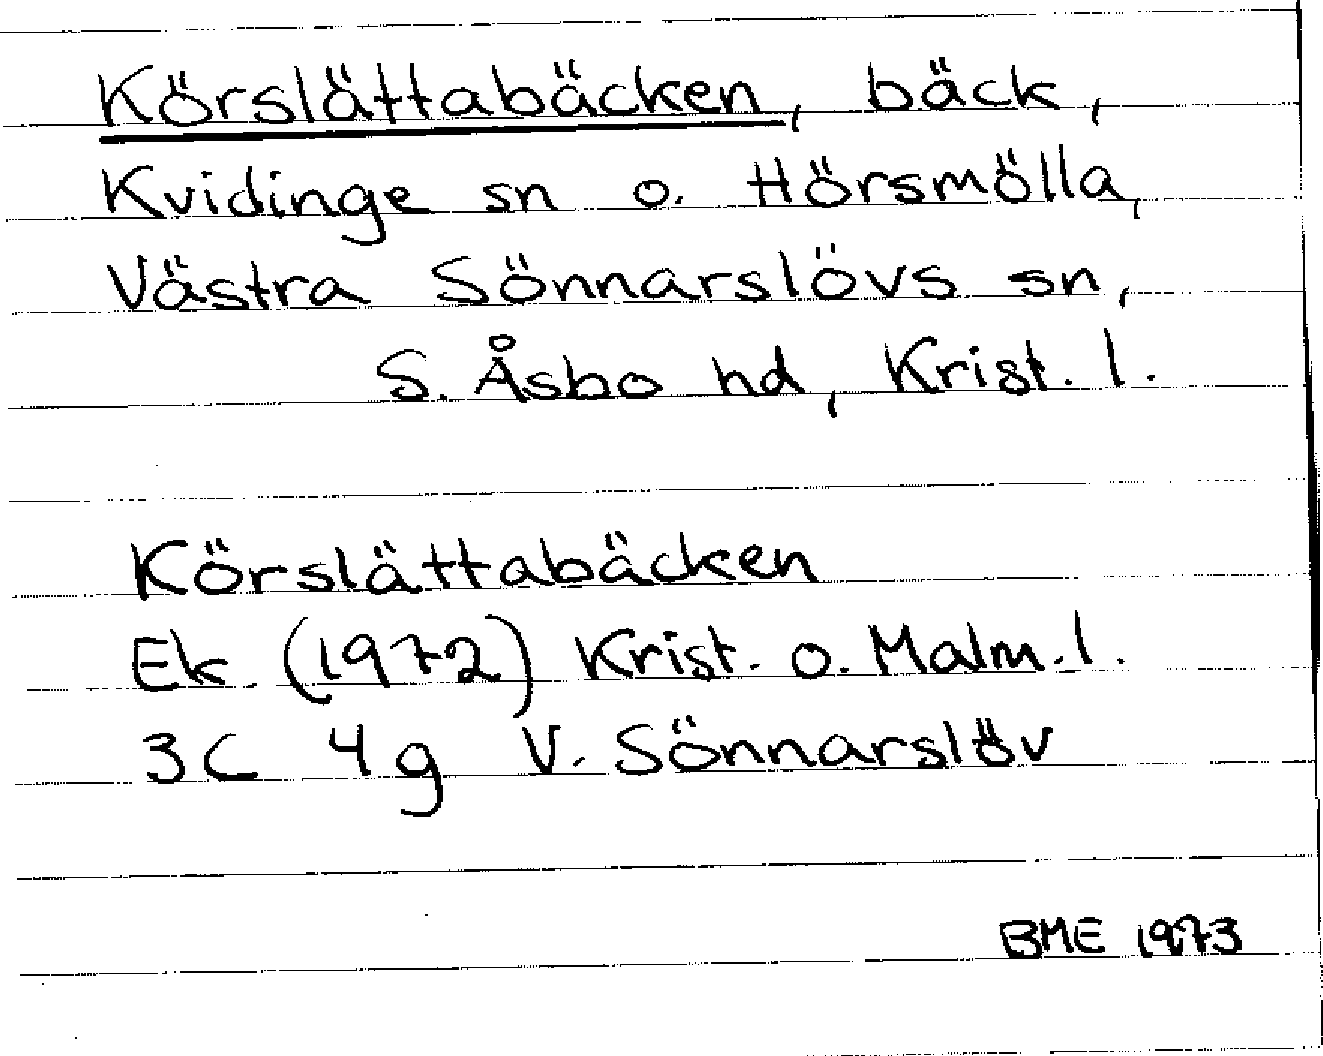 Körslättabäcken, bäck,
Kvidinge sn o. Hörsmölla,
Västra Sönnarslövs sn,
S. Åsbo hd, Krist. l.
Körslättabäcken
Ek (1972) Krist. o. Malm. l.
3C 4g V. Sönnarslöv
BME 1973